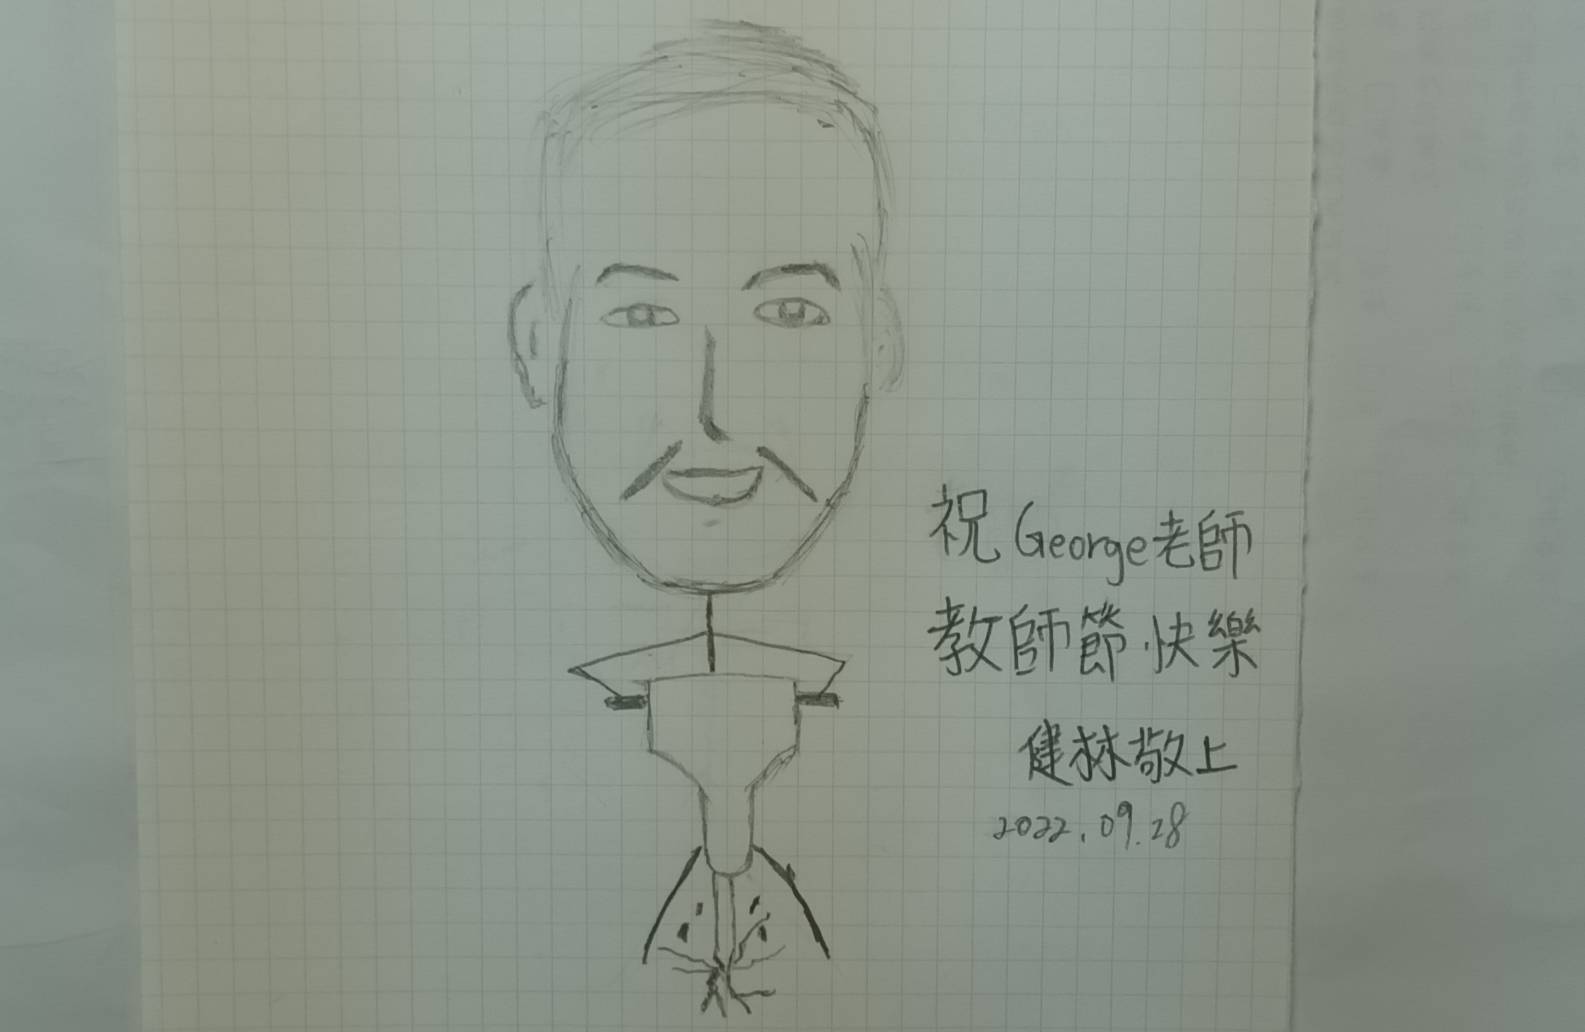 祝George老師
教師節快樂
健林敬上
2022.09.28